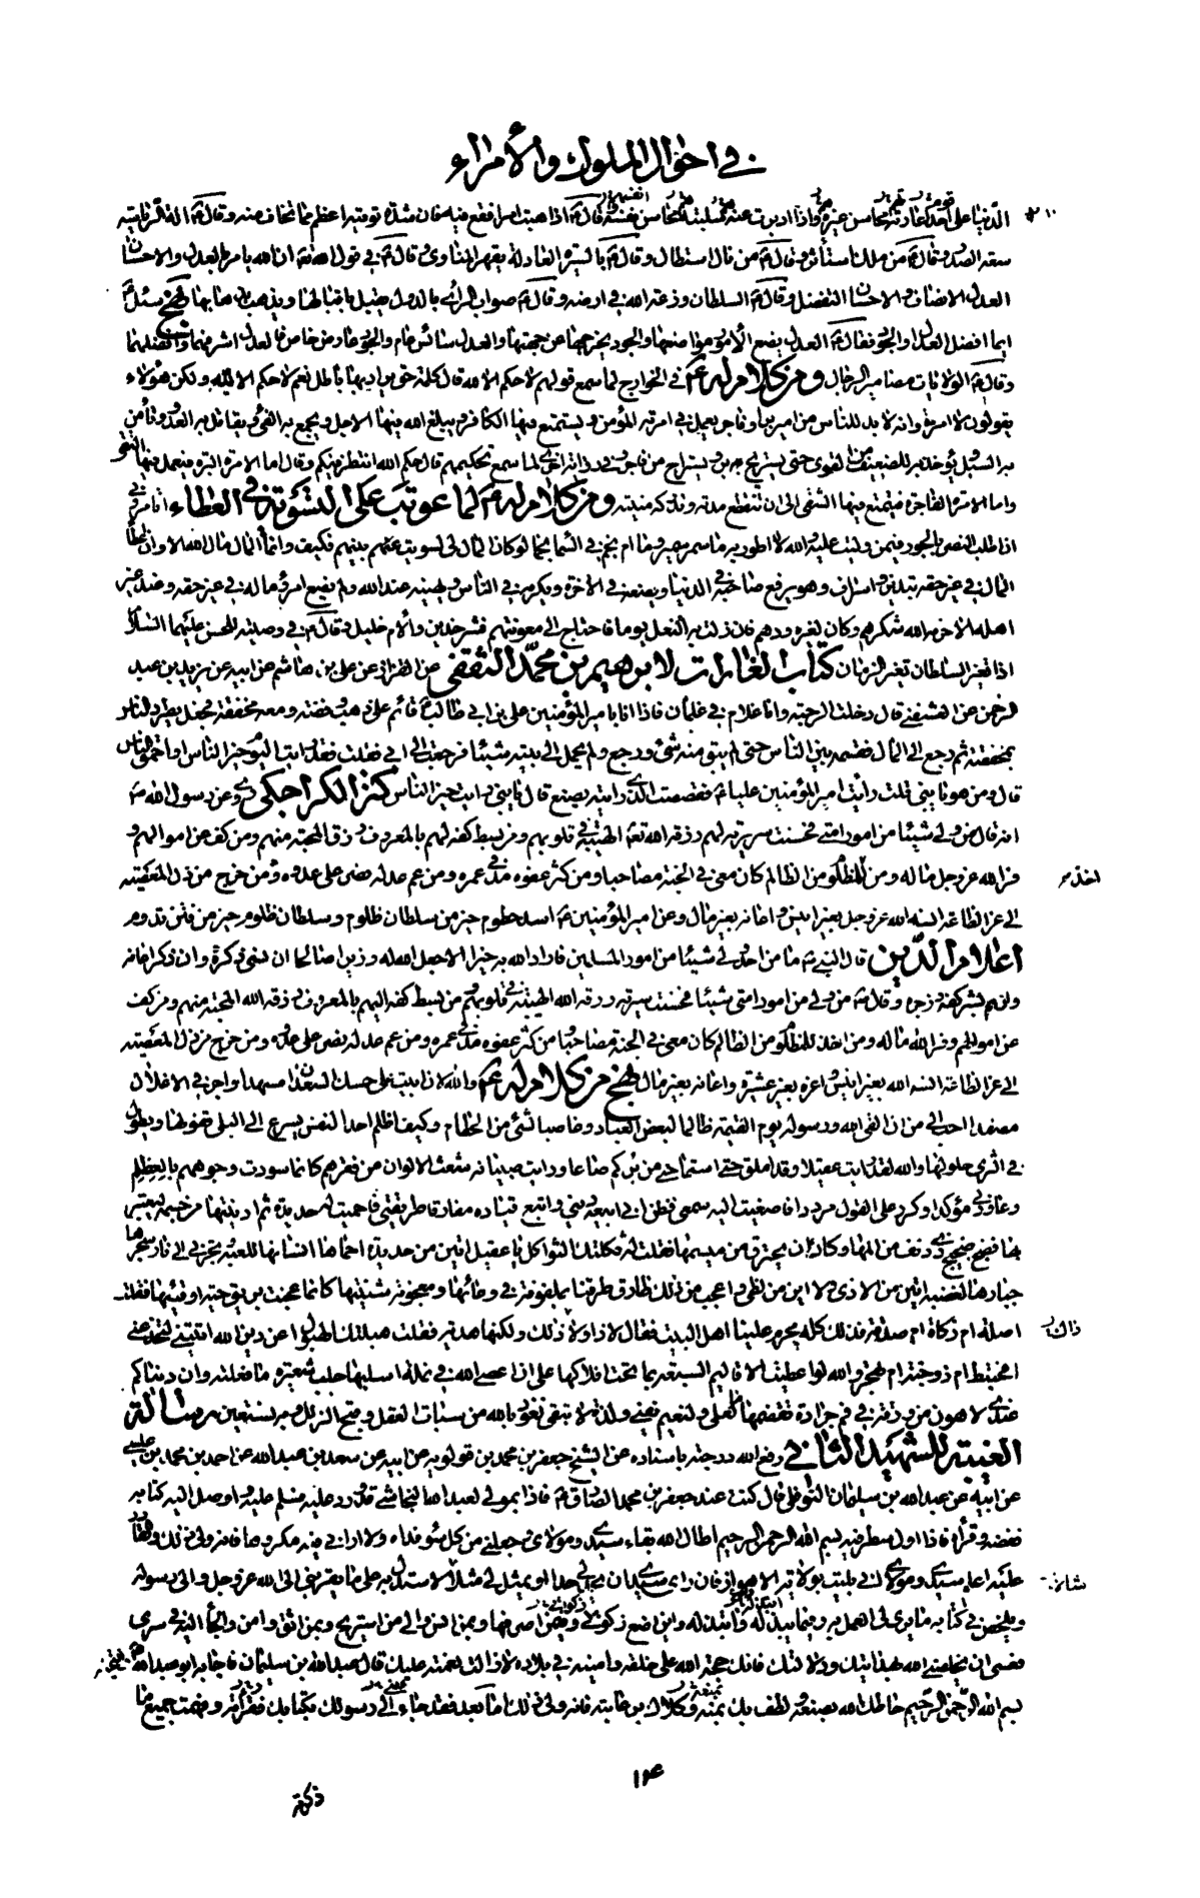 في احوال الملوك والأمراء
الدنيا على أحد أعارته محاسن غيره واذا ادبرت عنه سلبته محاسن نفسه وقال ع اذا هبت امرا فقع فيه فان شدة توقيه اعظم مما تخاف منه وقال ع آلة الرياسة
سعة الصدر وقال ع من ملك استأثر وقال ع من نال استطال وقال ع بالسيرة العادلة يقهر المناوي وقال ع في قول الله تع ان الله يامر بالعدل والاحسان
العدل الانصاف والاحسان التفضل وقال ع السلطان وزعة الله في ارضه وقال ع صواب الرأي بالدول يقبل باقبالها ويذهب بذهابها نهج سئل ع
ايما افضل العدل او الجود فقال ع العدل يضع الأمور مواضعها والجود يخرجها من جهتها والعدل سائس عام والجود عارض خاص فالعدل اشرفهما وافضلهما
وقال ع الولايات مضامير الرجال ومن كلام له ع في الخوارج لما سمع قولهم لا حكم الا لله قال كلمة حق يراد بها باطل نعم لا حكم الا لله ولكن هؤلاء
يقولون لا امرة وانه لا بد للناس من امير بر او فاجر يعمل في امرته المؤمن ويستمتع فيها الكافر ويبلغ الله فيها الاجل ويجمع به الفيء ويقاتل به العدو وتأمن
به السبل ويؤخذ به للضعيف من القوى حتى يستريح بر ويستراح من فاجر وفي رواية اخرى لما سمع تحكيمهم قال حكم الله انتظر فيكم وقال اما الامرة البرة فيعمل فيها التقي
واما الامرة الفاجرة فيتمتع فيها الشقى الى ان تنقطع مدته وتدركه منيته ومن كلام له ع لما عوتب على التسوية في العطاء اتامروني
ان اطلب النصر بالجور فيمن وليت عليه والله لا اطور به ما سمر سمير وما ام نجم في السماء نجما لو كان المال لي لسويت بينهم فكيف وانما المال مال الله الا وان اعطاء
المال في غير حقه تبذير واسراف وهو يرفع صاحبه في الدنيا ويضعه في الاخرة ويكرمه في الناس ويهينه عند الله ولم يضع امرؤ ماله في غير حقه وعند غير
اهله الا حرمه الله شكرهم وكان لغيره ودهم فان زلت به النعل يوما فاحتاج الى معونتهم فشر خدين وألام خليل وقال ع في وصيته للحسن عليهما السلام
اذا تغير السلطان تغير الزمان كتاب الغارات لابراهيم بن محمد الثقفي
الرحمن قال دخلت الرحبة وانا غلام في غلمان فاذا انا بامير المؤمنين علي بن ابي طالب ع قائم على ذهب وفضة ومعه مخفقة فجعل يطرد الناس
بمخفقته ثم رجع الى المال فقسمه بين الناس حتى لم يبق منه شئ ورجع ولم يحمل الى بيته شيئا فرجعت الى ابي فقلت لقد رايت اليوم خير الناس او احمق الناس
قال ومن هو يا بني قلت رأيت امير المؤمنين عليا ع فقصصت الذي رايته يصنع قال يا بني رايت خير الناس كنز الكراجكي روي عن رسول الله ص
انه قال من ولي شيئا من امور امتي فحسنت سريرته لهم رزقه الله تع الهيبة في قلوبهم ومن بسط كفه لهم بالمعروف رزق المحبة منهم ومن كف عن اموالهم
وفر الله عز وجل ماله ومن اخذ للمظلوم من الظالم كان معي في الجنة مصاحبا ومن كثر عفوه مد في عمره ومن عم عدله نصر على عدوه ومن خرج من ذل المعصية
الى عز الطاعة انسه الله عز وجل بغير انيس واعانه بغير مال وعن امير المؤمنين ع اسد حطوم خير من سلطان ظلوم وسلطان ظلوم خير من فتن تدوم
اعلام الدين قال النبي ص ما من احد ولي شيئا من امور المسلمين فاراد الله به خيرا الا جعل الله له وزيرا صالحا ان نسي ذكره وان ذكر اعانه
وان هم بشر كفه وزجره وقال ص من ولي من امور امتي شيئا فحسنت سيرته رزقه الله الهيبة في قلوبهم ومن بسط كفه اليهم بالمعروف رزقه الله المحبة منهم ومن كف
عن اموالهم وفر الله ماله ومن اخذ للمظلوم من الظالم كان معي في الجنة مصاحبا ومن كثر عفوه مد في عمره ومن عم عدله نصر على عدوه ومن خرج من ذل المعصية
الى عز الطاعة انسه الله بغير انيس واعزه بغير عشيرة واعانه بغير مال نهج من كلام له ع والله لان ابيت على حسك السعدان مسهدا واجر في الاغلال
مصفدا احب الي من ان القى الله ورسوله يوم القيمة ظالما لبعض العباد وغاصبا لشئ من الحطام وكيف اظلم احدا لنفس يسرع الى البلى قفولها ويطول
في الثرى حلولها والله لقد رايت عقيلا وقد املق حتى استماحني من بركم صاعا ورايت صبيانه شعث الالوان من فقرهم كانما سودت وجوههم بالعظلم
وعاودني مؤكدا وكرر على القول مرددا فاصغيت اليه سمعى فظن اني ابيعه ديني واتبع قياده مفارقا طريقتي فاحميت له حديدة ثم ادنيتها من جسمه ليعتبر
بها فضج ضجيج ذي دنف من المها وكاد ان يحترق من ميسمها فقلت له ثكلتك الثواكل يا عقيل اتئن من حديدة احماها انسانها للعبه وتجرني الى نار سجرها
جبارها لغضبه اتئن من الاذى ولا ائن من لظى واعجب من ذلك طارق طرقنا بملفوفة في وعائها ومعجونة شنئتها كانما عجنت بريق حية او قيئها فقلت
اصلة ام زكاة ام صدقة فذلك كله محرم علينا اهل البيت فقال لا ذا ولا ذاك ولكنها هدية فقلت هبلتك الهبول اعن دين الله اتيتني لتخدعني
امختبط ام ذو جنة ام تهجر والله لو اعطيت الاقاليم السبعة بما تحت افلاكها على ان اعصى الله في نملة اسلبها جلب شعيرة ما فعلته وان دنياكم
عندي لاهون من ورقة في فم جرادة تقضمها ما لعلى ولنعيم يفنى ولذة لا تبقى نعوذ بالله من سبات العقل وقبح الزلل وبه نستعين رسالة
الغيبة للشهيد الثاني رفع الله درجته باسناده عن الشيخ جعفر بن محمد بن قولويه عن ابيه عن سعد بن عبد الله عن احمد بن محمد بن عيسى
عن ابيه عن عبد الله بن سليمان النوفلي قال كنت عند جعفر بن محمد الصادق ع فاذا بمولى لعبد الله النجاشي قد ورد عليه فسلم عليه واوصل اليه كتابه
ففضه وقرأه فاذا اول سطر فيه بسم الله الرحمن الرحيم اطال الله بقاء سيدي ومولاي وجعلني من كل سوء فداه ولا اراني فيه مكروها فانه ولي ذلك والقادر
عليه اعلم سيدي ومولاي اني بليت بولاية الاهواز فان راى سيدي ان يحد لي حدا او يمثل لي مثلا لاستدل به على ما يقربني الى الله عز وجل والى رسوله
ويلخص في كتابه ما يرى لي العمل به وفيما يبذله وابتذله واين اضع زكوتي وفيمن اصرفها وبمن انس والى من استريح وبمن اثق وامن والجأ اليه في سري
فعسى ان يخلصني الله بهدايتك ودلالتك فانك حجة الله على خلقه وامينه في بلاده لا زالت نعمته عليك قال عبد الله بن سليمان فاجابه ابو عبد الله ع
بسم الله الرحمن الرحيم حاطك الله بصنعه ولطف بك بمنه وكلاك برعايته فانه ولي ذلك اما بعد فقد جاء الي رسولك بكتابك فقرأته وفهمت جميع ما
ذكرته